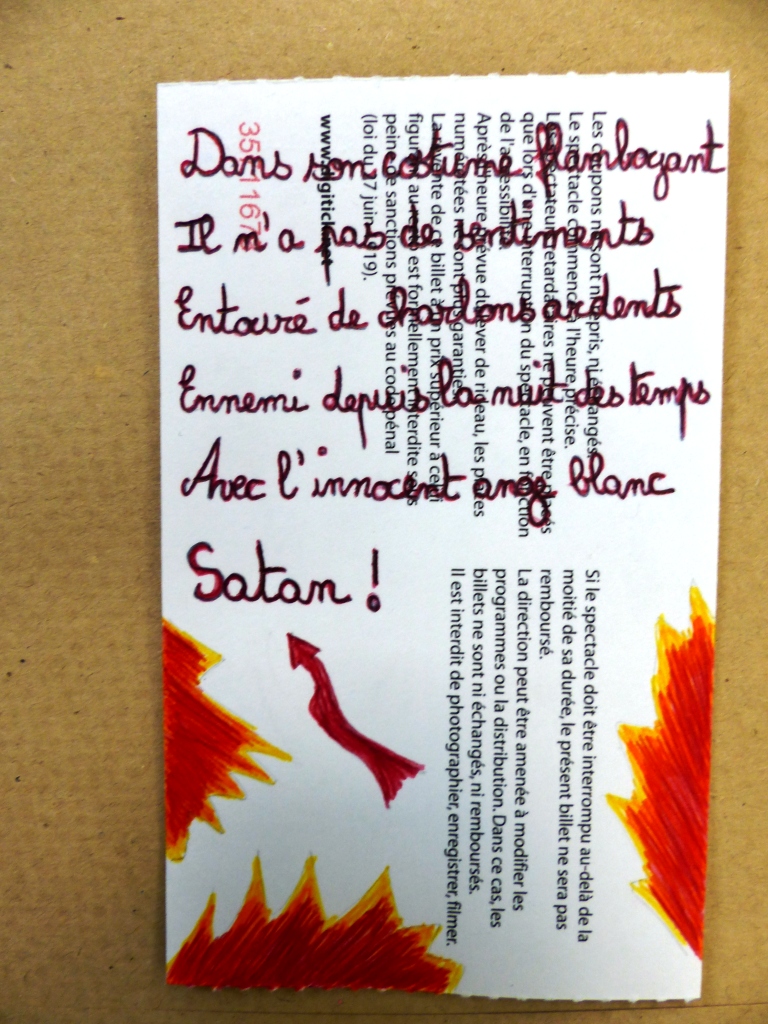 Dans son costume flamboyant
Il n'a pas de sentiments
Entouré de charbons ardents
Ennemi depuis la nuit des temps
Avec l'innocent ange blanc
Satan !
Les coupons ne sont ni repris, ni échangés.
Le spectacle commence à l'heure précise.
Les spectateurs retardataires ne peuvent être placés
que lors d'une interruption du spectacle, en fonction
de l'accessibilité.
Après l'heure prévue du lever de rideau, les places
numérotées ne sont plus garanties.
La vente de ce billet à un prix supérieur à celui
figurant au recto est formellement interdite sous
peine de sanctions prévues au code pénal
(loi du 27 juin 1919).
www.digitick.net
Si le spectacle doit être interrompu au-delà de la
moitié de sa durée, le présent billet ne sera pas
remboursé.
La direction peut être amenée à modifier les
programmes ou la distribution. Dans ce cas, les
billets ne sont ni échangés, ni remboursés.
Il est interdit de photographier, enregistrer, filmer.